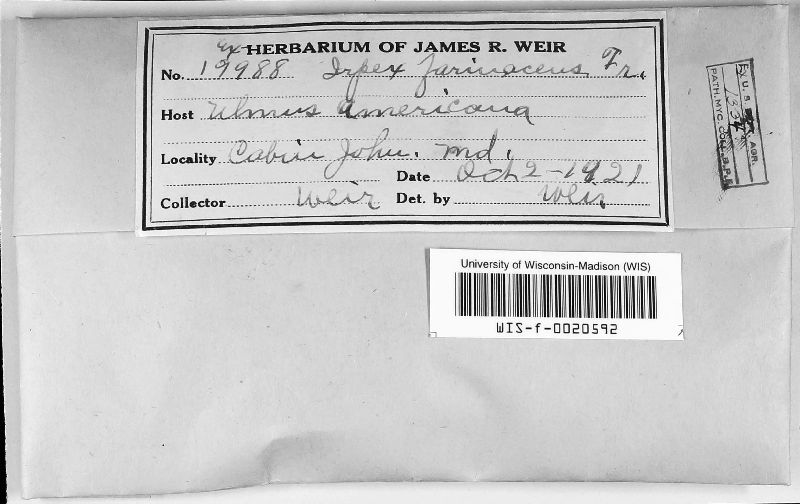 Ex HERBARIUM OF JAMES R. WEIR
No. 19988 Irpex farinaceus Fr.
Host Ulmus americana
Locality Cabin John, Md.
Date Oct 2-1921
Collector Weir Det. by Weir
University of Wisconsin-Madison (WIS)
WIS-f-0020592
Ex U. S. AGR.
PATH. MYC. COLL. B.P.I.